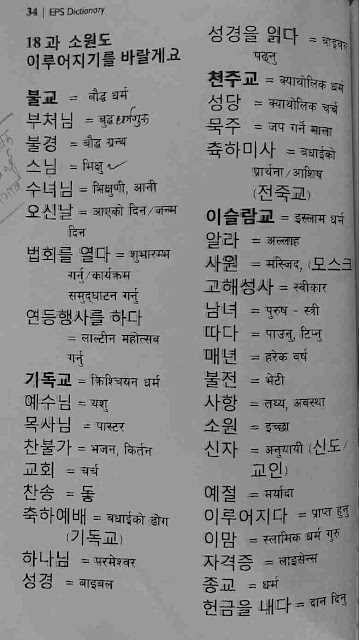 34 | EPS Dictionary
18 과 소원도
이루어지기를 바랄게요
불교 = बौद्ध धर्म
부처님 = बुद्ध धर्मगुरु
불경 = बौद्ध ग्रन्थ
스님 = भिक्षु
수녀님 = भिक्षुणी, आनी
오신날 = आएको दिन/जन्म
दिन
법회를 열다 = शुभारम्भ
गर्नु/कार्यक्रम
समुद्घाटन गर्नु
연등행사를 하다
= लाल्टीन महोत्सव
गर्नु
기독교 = क्रिश्चियन धर्म
예수님 = यशु
목사님 = पास्टर
찬불가 = भजन, किर्तन
교회 = चर्च
찬송 =
축하예배 = बधाईको ढोग
(기독교)
하나님 = परमेश्वर
성경 = बाइबल
성경을 읽다 = बाइबल
पढ्नु
천주교 = क्याथोलिक धर्म
성당 = क्याथोलिक चर्च
묵주 = जप गर्ने माला
축하미사 = बधाईको
प्रार्थना/आशिष
(전죽교)
이슬람교 = इस्लाम धर्म
알라 = अल्लाह
사원 = मस्जिद, (모스크
고해성사 = स्वीकार
남녀 = पुरुष - स्त्री
따다 = पाउनु, टिप्नु
매년 = हरेक वर्ष
불전 = भेटी
사항 = तथ्य, अवस्था
소원 = इच्छा
신자 = अनुयायी (신도/
교인)
예절 = मर्यादा
이루어지다 = प्राप्त हुनु
이맘 = स्लामिक धर्म गुरु
자격증 = लाइसेन्स
종교 = धर्म
헌금을 내다 = दान दिनु